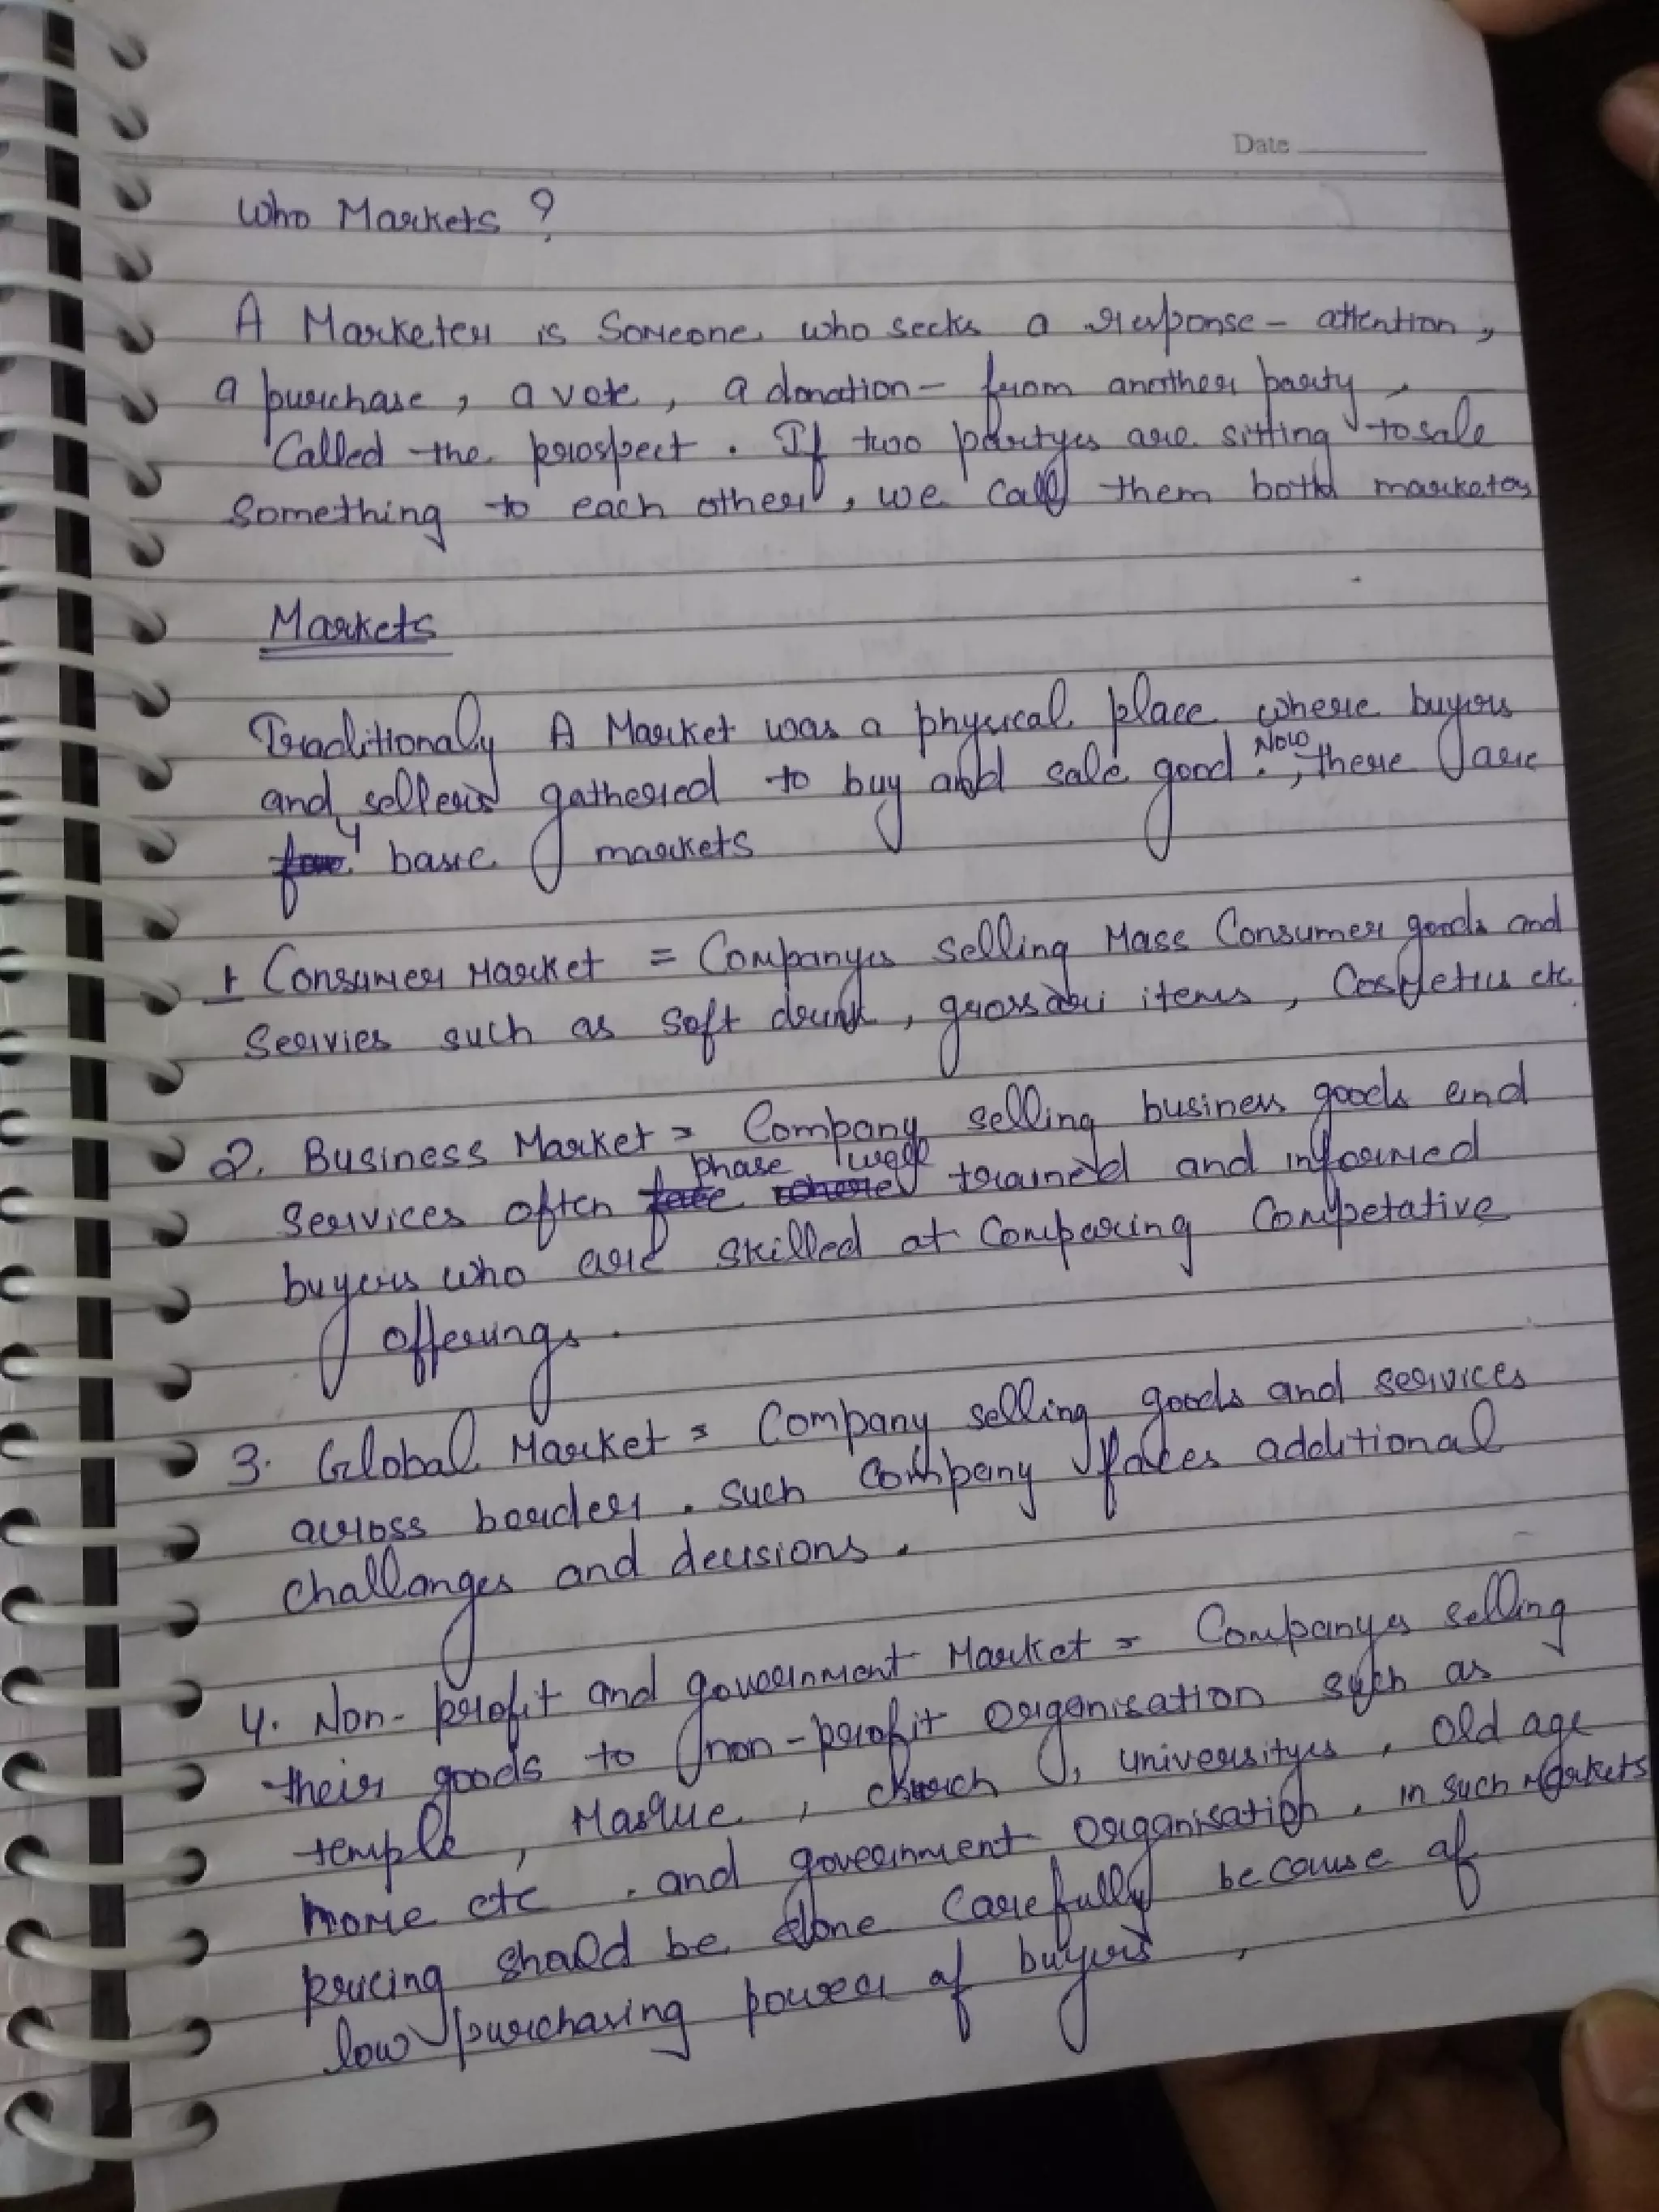 Date
Who Markets ?
A Marketer is Someone who seeks a response - attention,
a purchase, a vote, a donation - from another party,
Called the prospect. If two partyes are sitting to sale
Something to each other, we call them both marketers
Markets
Traditionaly A Market was a physical place where buyers
and sellers gathered to buy and sale good. Now, there are
4 basic markets
1 Consumer Market = Companyes selling Mass Consumer goods and
Servies such as soft drink, grossari items, Cosmetics etc.
2. Business Market = Company selling business goods and
Services often phase well trained and informed
buyers who are skilled at Comparing Competative
offerings.
3. Global Market = Company selling goods and services
across border. such Company faces additional
challanges and decisions.
4. Non-profit and government Market = Companyes selling
their goods to non-profit organisation such as
temple, Masque, church, universityes, old age
home etc. and government organisation. in such Markets
pricing shoald be done Carefully because of
low purchasing power of buyers,